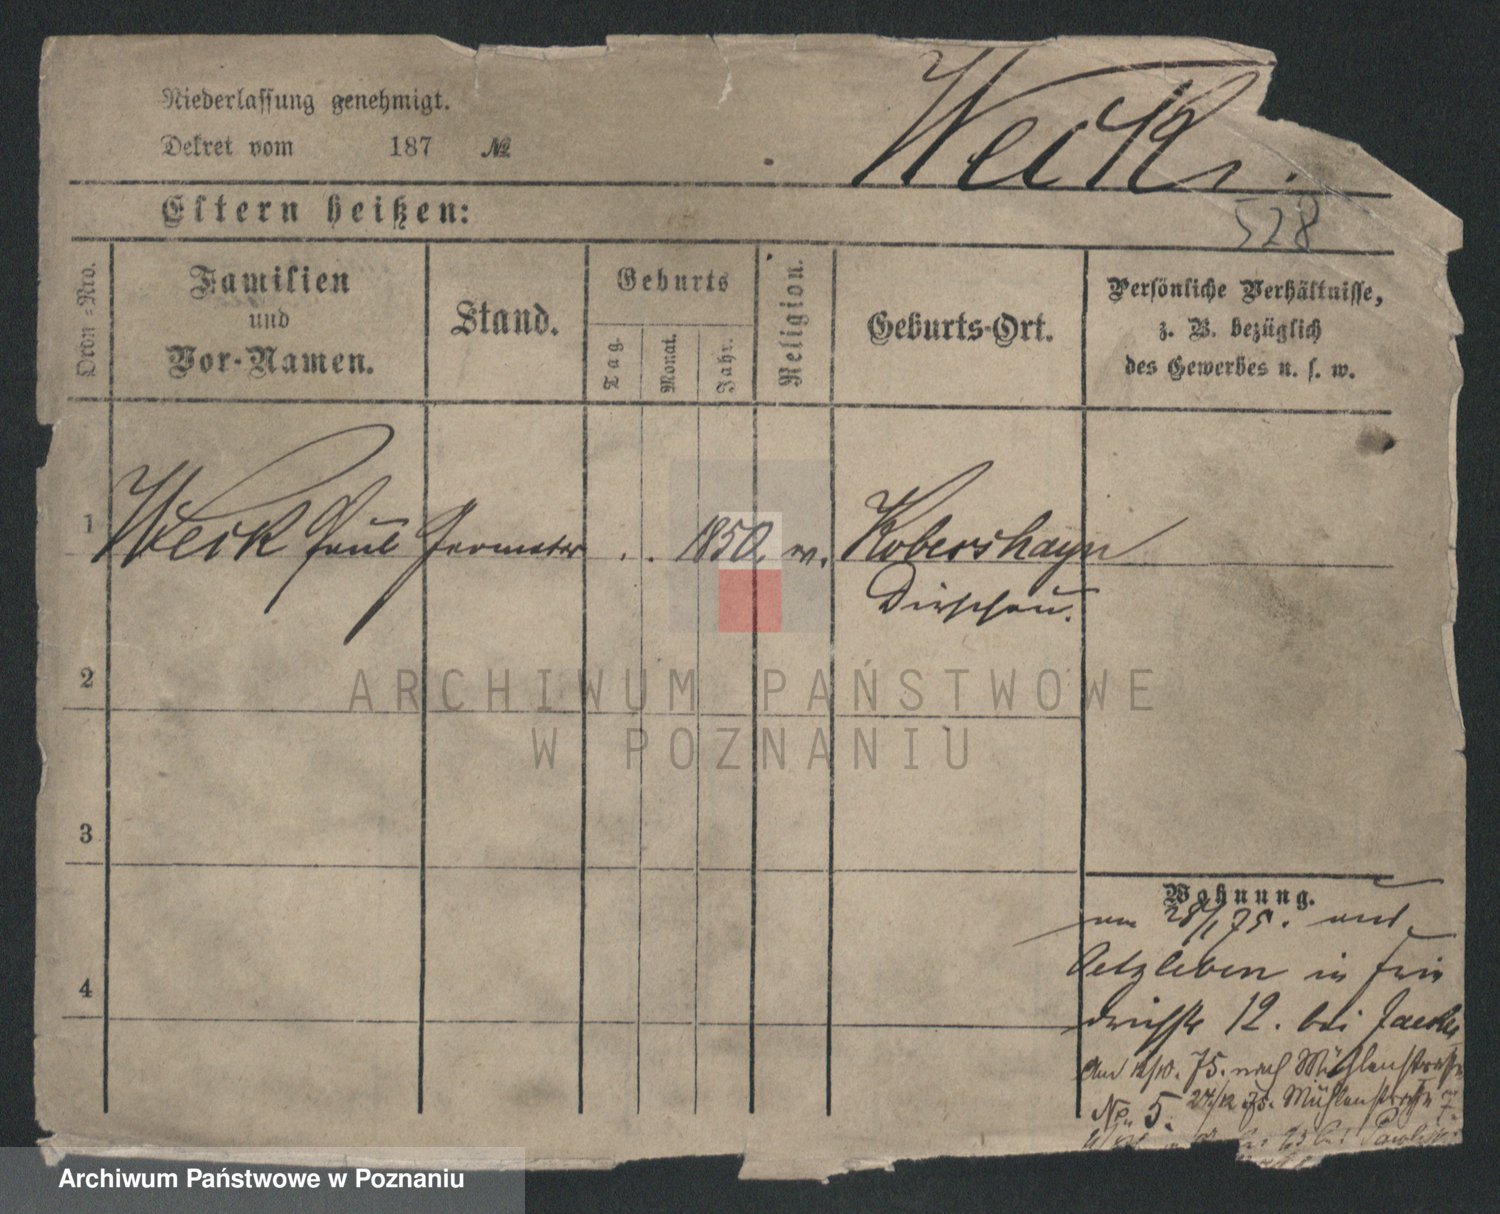 Niederlassung genehmigt.
Dekret vom 187 №
Weck.
528
Eltern heißen:
Ordn.=Nro.
Familien
und
Vor-Namen.
Stand.
Geburts
Tag.
Monat.
Jahr.
Religion.
Geburts-Ort.
Persönliche Verhältnisse,
z. B. bezüglich
des Gewerbes u. s. w.
1 Weck Paul Geometer . . 1850. ev. Kobershayn
Dirschau.
2
ARCHIWUM PAŃSTWOWE
W POZNANIU
3
Wohnung.
28/1 75.
in Frie
4
drichstr 12. bei
am 12/10. 75. nach Mühlenstrasse
No. 5. 27/12 75. Mühlenstrasse 7
Archiwum Państwowe w Poznaniu